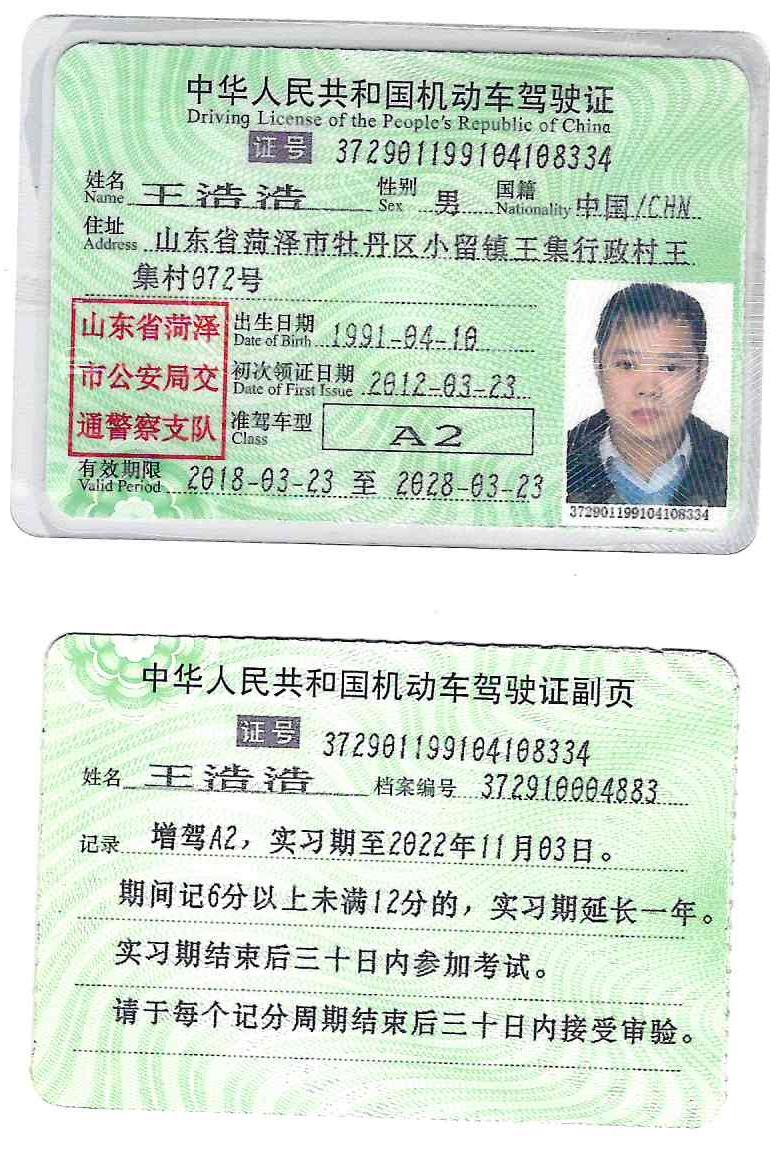 中华人民共和国机动车驾驶证
Driving License of the People's Republic of China
证号 372901199104108334
姓名 Name 王浩浩 性别 Sex 男 国籍 Nationality 中国/CHN
住址 Address 山东省菏泽市牡丹区小留镇王集行政村王
集村072号
山东省菏泽
市公安局交
通警察支队
出生日期 Date of Birth 1991-04-10
初次领证日期 Date of First Issue 2012-03-23
准驾车型 Class A2
有效期限 Valid Period 2018-03-23 至 2028-03-23
372901199104108334
中华人民共和国机动车驾驶证副页
证号 372901199104108334
姓名 王浩浩 档案编号 372910004883
记录 增驾A2，实习期至2022年11月03日。
期间记6分以上未满12分的，实习期延长一年。
实习期结束后三十日内参加考试。
请于每个记分周期结束后三十日内接受审验。